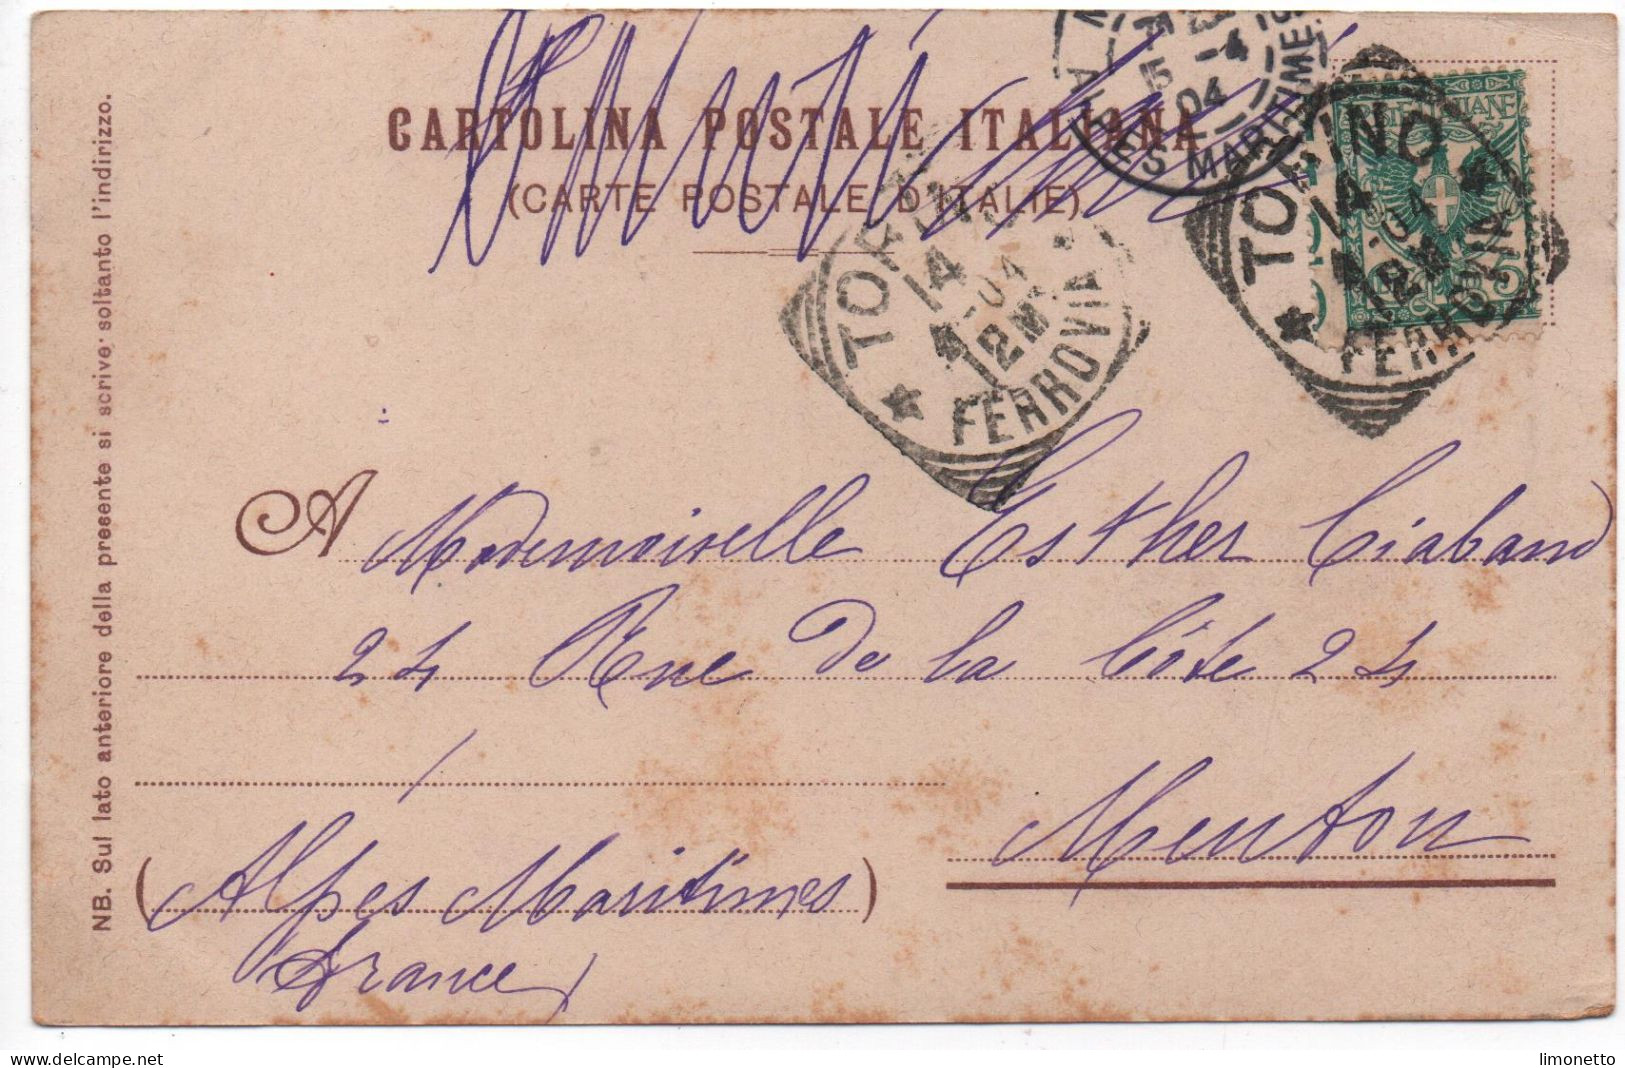 CARTOLINA POSTALE ITALIANA
(CARTE POSTALE D'ITALIE)
ALPES MARITIMES
15
04
TORINO
14
4-04
12M
FERROVIA
TORINO
14
4
12M
FERROVIA
NB. Sul lato anteriore della presente si scrive soltanto l'indirizzo.
A Mademoiselle Esther Ciabaud
24 Rue de la Côte 24
Menton
(Alpes Maritimes)
France
delcampe.net
limonetto